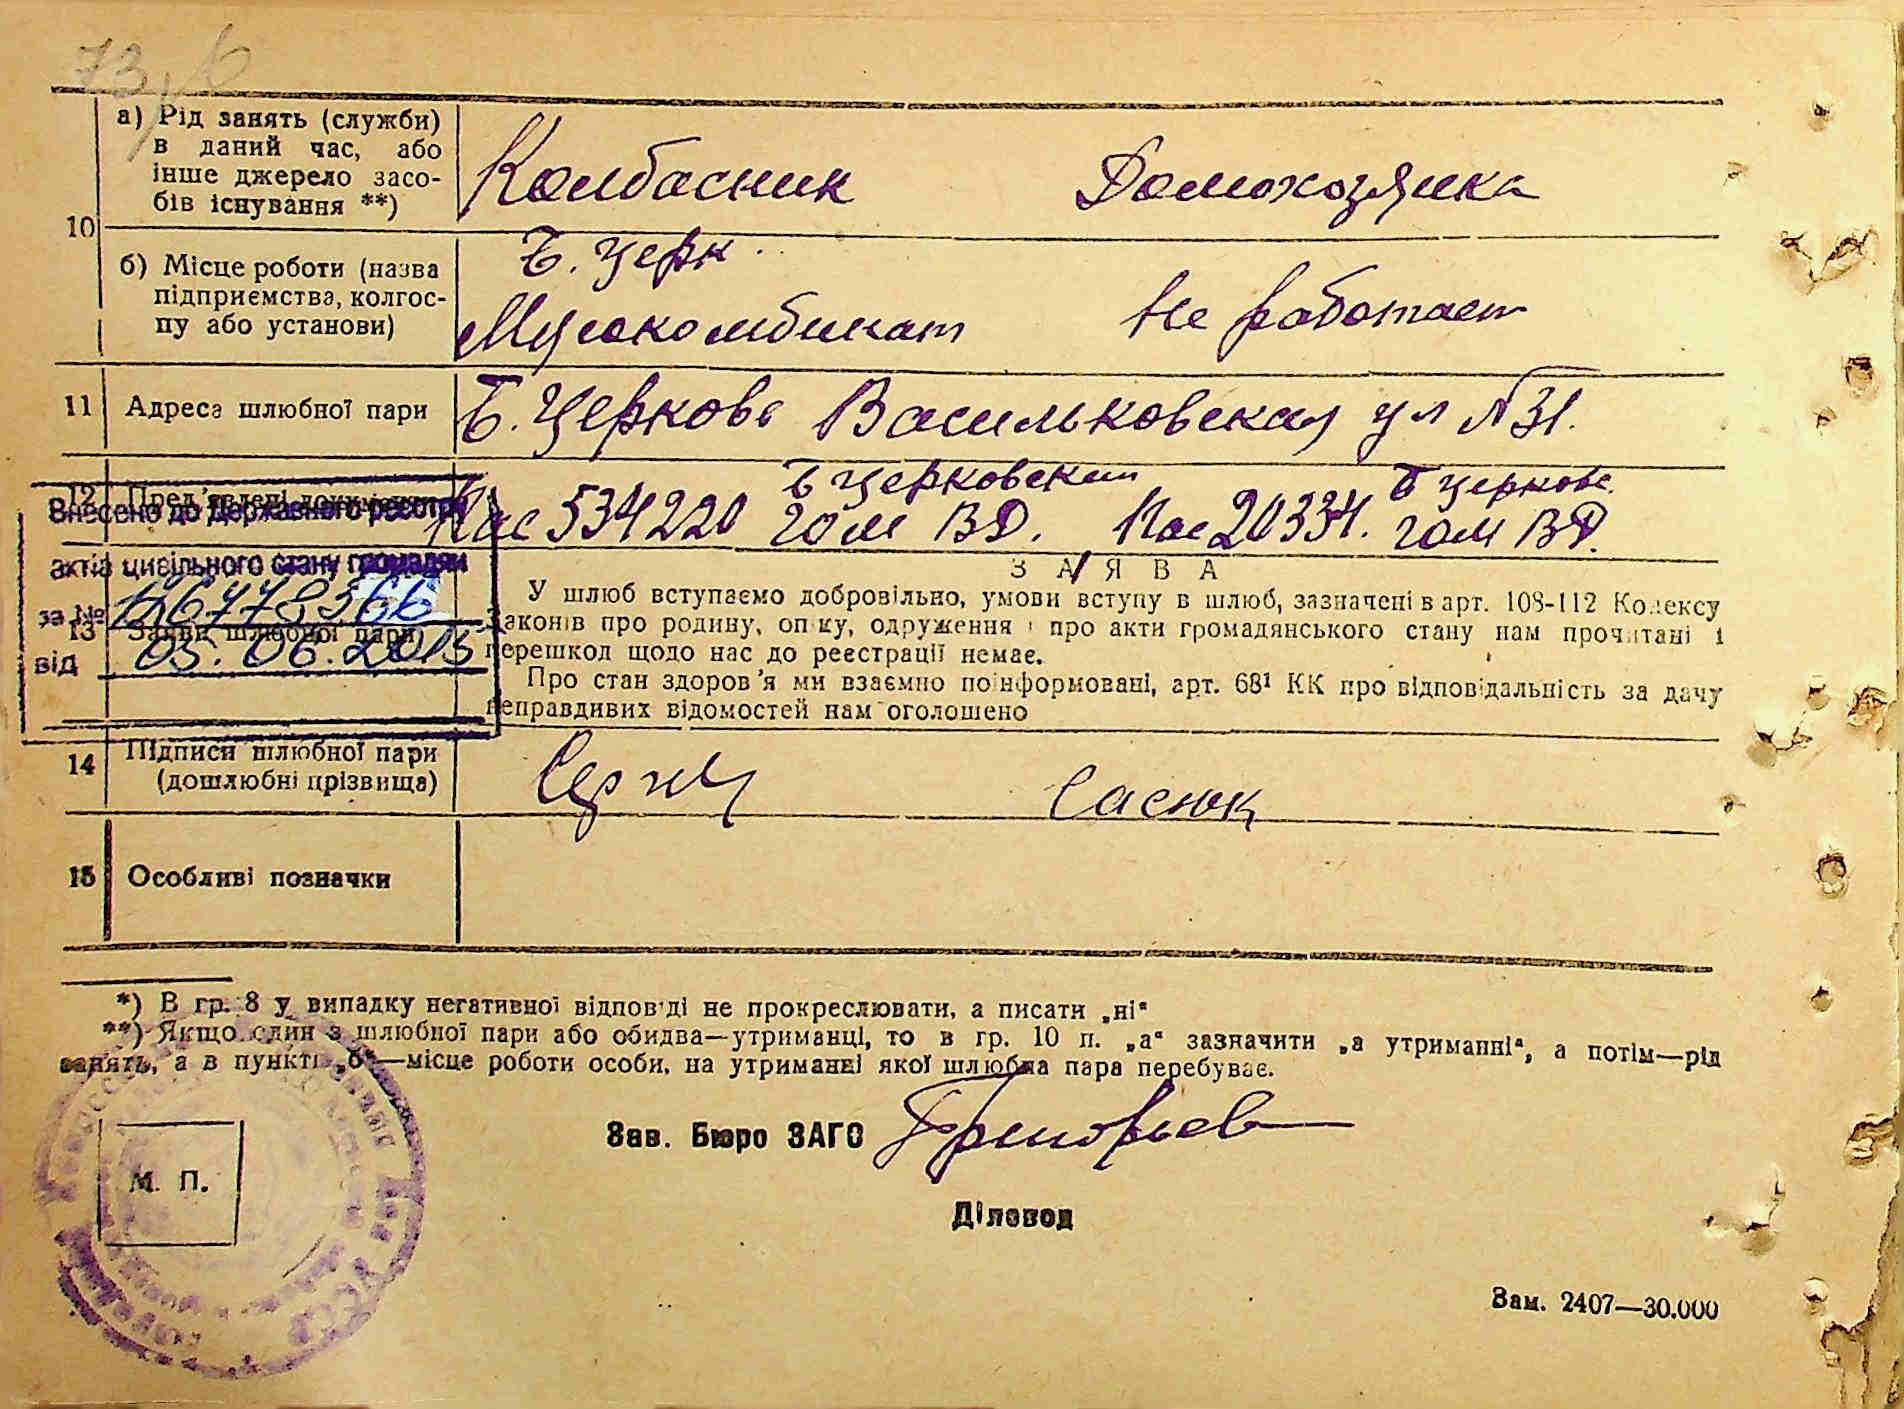 73
а) Рід занять (служби)
в даний час, або
інше джерело засо-
бів існування **)
Колбасник Домохозяика
10
б) Місце роботи (назва
підприємства, колгос-
пу або установи)
Б. Церк.
Мясокомбинат Не работает
11 Адреса шлюбної пари Б. Церковь Васильковская ул №31.
12 Пред'явлені документи Пас 534220 Б Церковским гом ВД. Пас 20334. Б Церковс. гом ВД.
Внесено до Державного реєстру
актів цивільного стану громадян
за №
від 05.06.2015
13 Заяви шлюбної пари
ЗАЯВА
У шлюб вступаємо добровільно, умови вступу в шлюб, зазначені в арт. 108-112 Кодексу
Законів про родину, опіку, одруження і про акти громадянського стану нам прочитані і
перешкод щодо нас до реєстрації немає.
Про стан здоров'я ми взаємно поінформовані, арт. 68¹ КК про відповідальність за дачу
неправдивих відомостей нам оголошено
14 Підписи шлюбної пари
(дошлюбні прізвища)
Сасюк
15 Особливі позначки
*) В гр. 8 у випадку негативної відповіді не прокреслювати, а писати „ні“
**) Якщо один з шлюбної пари або обидва—утриманці, то в гр. 10 п. „а“ зазначити „а утриманні“, а потім—рід
занять, а в пункті „б“—місце роботи особи, на утриманні якої шлюбна пара перебуває.
Зав. Бюро ЗАГС Григорьев
М. П.
Діловод
Зам. 2407—30.000